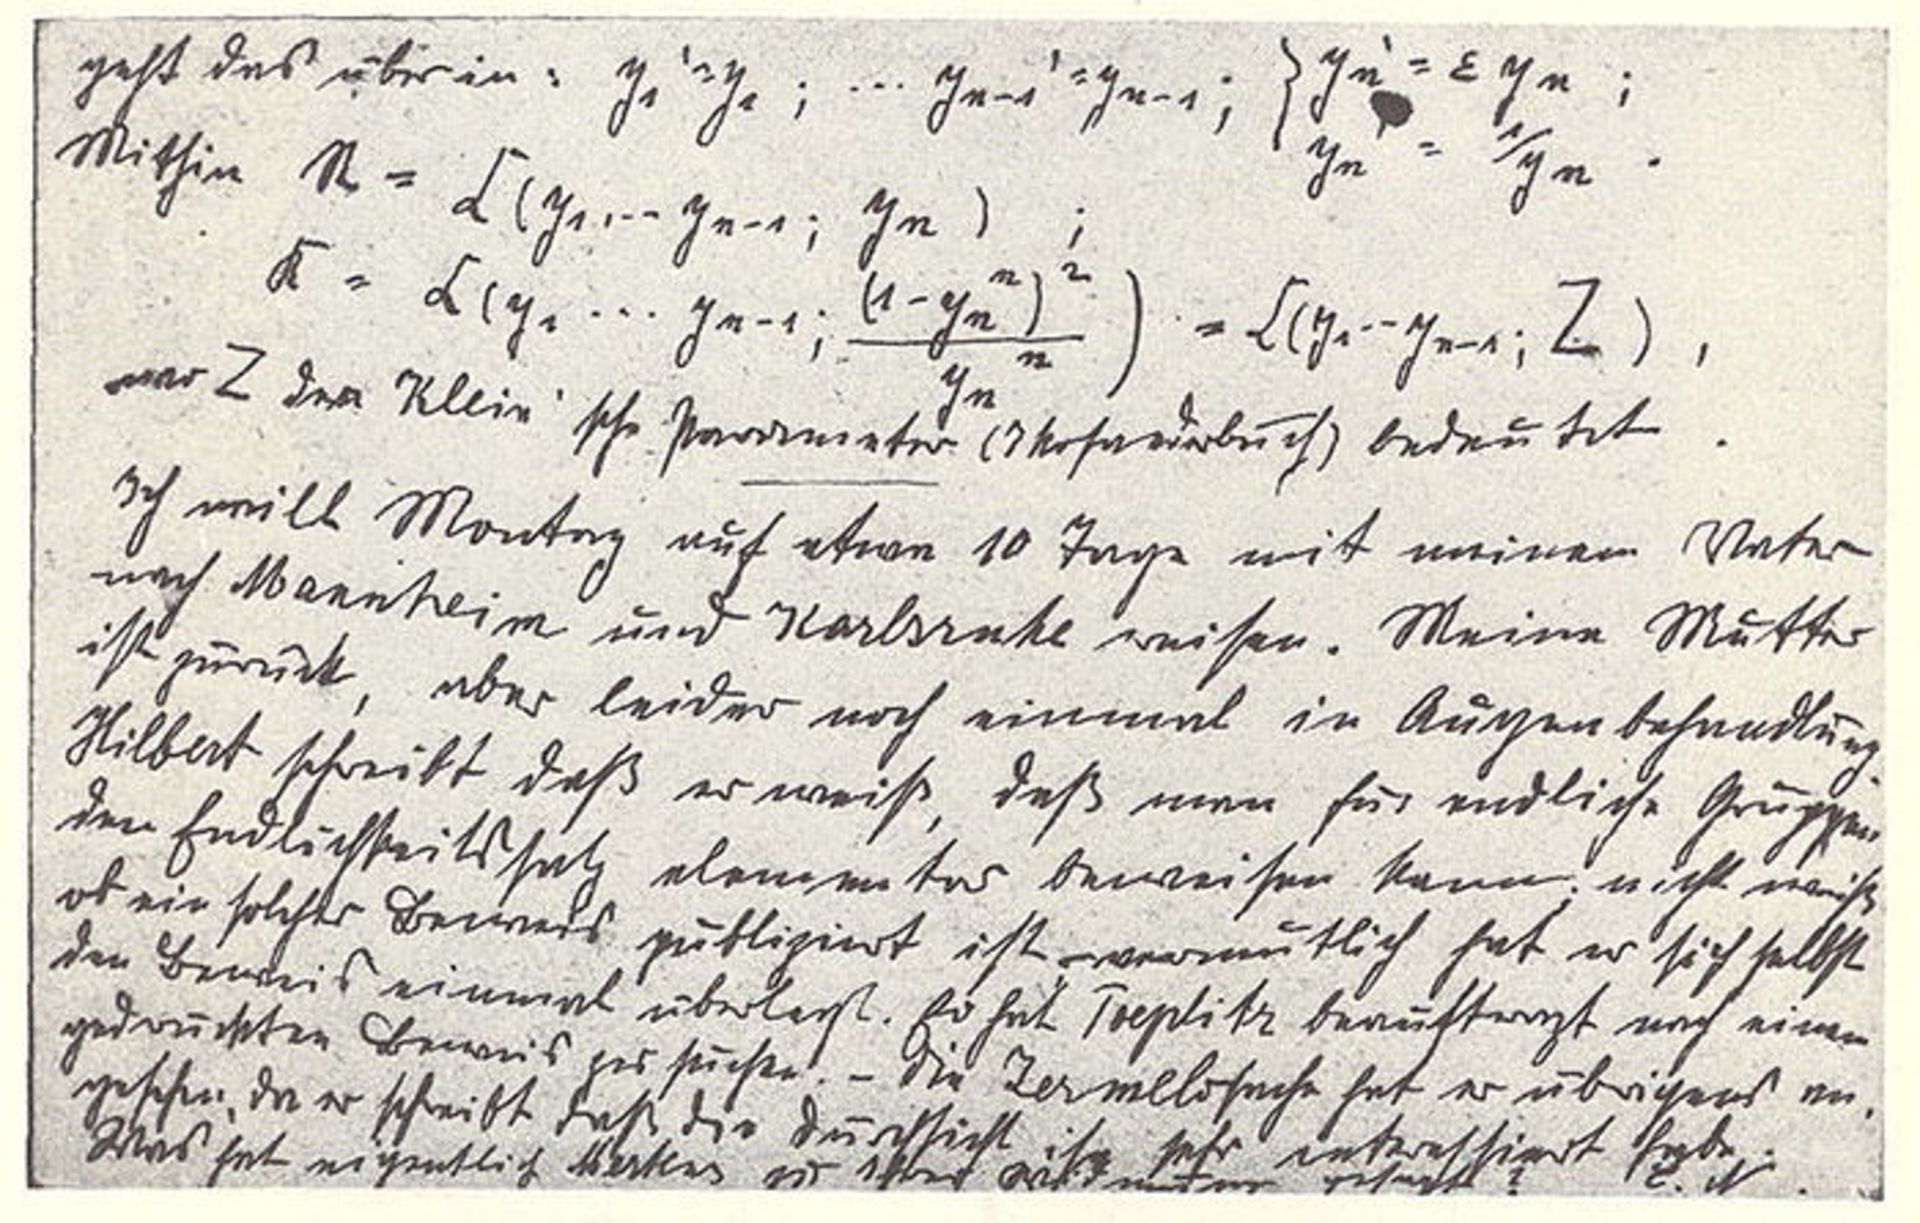 geht das über in: y₁' = y₁; ... yₙ₋₁' = yₙ₋₁; { yₙ' = ε yₙ ;
yₙ' = 1/yₙ .
Mithin R = L(y₁, ... yₙ₋₁; yₙ) ;
K = L(y₁ ... yₙ₋₁; (1 - yₙⁿ)² / yₙⁿ) = L(y₁ ... yₙ₋₁; Z) ,
wo Z den Klein'sche Parameter (Ikosaederbuch) bedeutet .
Ich will Montag auf etwa 10 Tage mit meinem Vater
nach Mannheim und Karlsruhe reisen. Meine Mutter
ist zurück, aber leider noch einmal in Augenbehandlung.
Hilbert schreibt daß er weiß, daß man für endliche Gruppen
den Endlichkeitssatz elementar beweisen kann; nicht weiß
ob ein solcher Beweis publiziert ist – vermutlich hat er sich selbst
den Beweis einmal überlegt. Er hat Toeplitz beauftragt nach einem
gedruckten Beweis zu suchen. – Die Zermellosache hat er übrigens an-
gesehen, da er schreibt daß die Durchsicht ihn sehr interessiert habe.
Was hat eigentlich zu Ihrer gesagt? E. N.